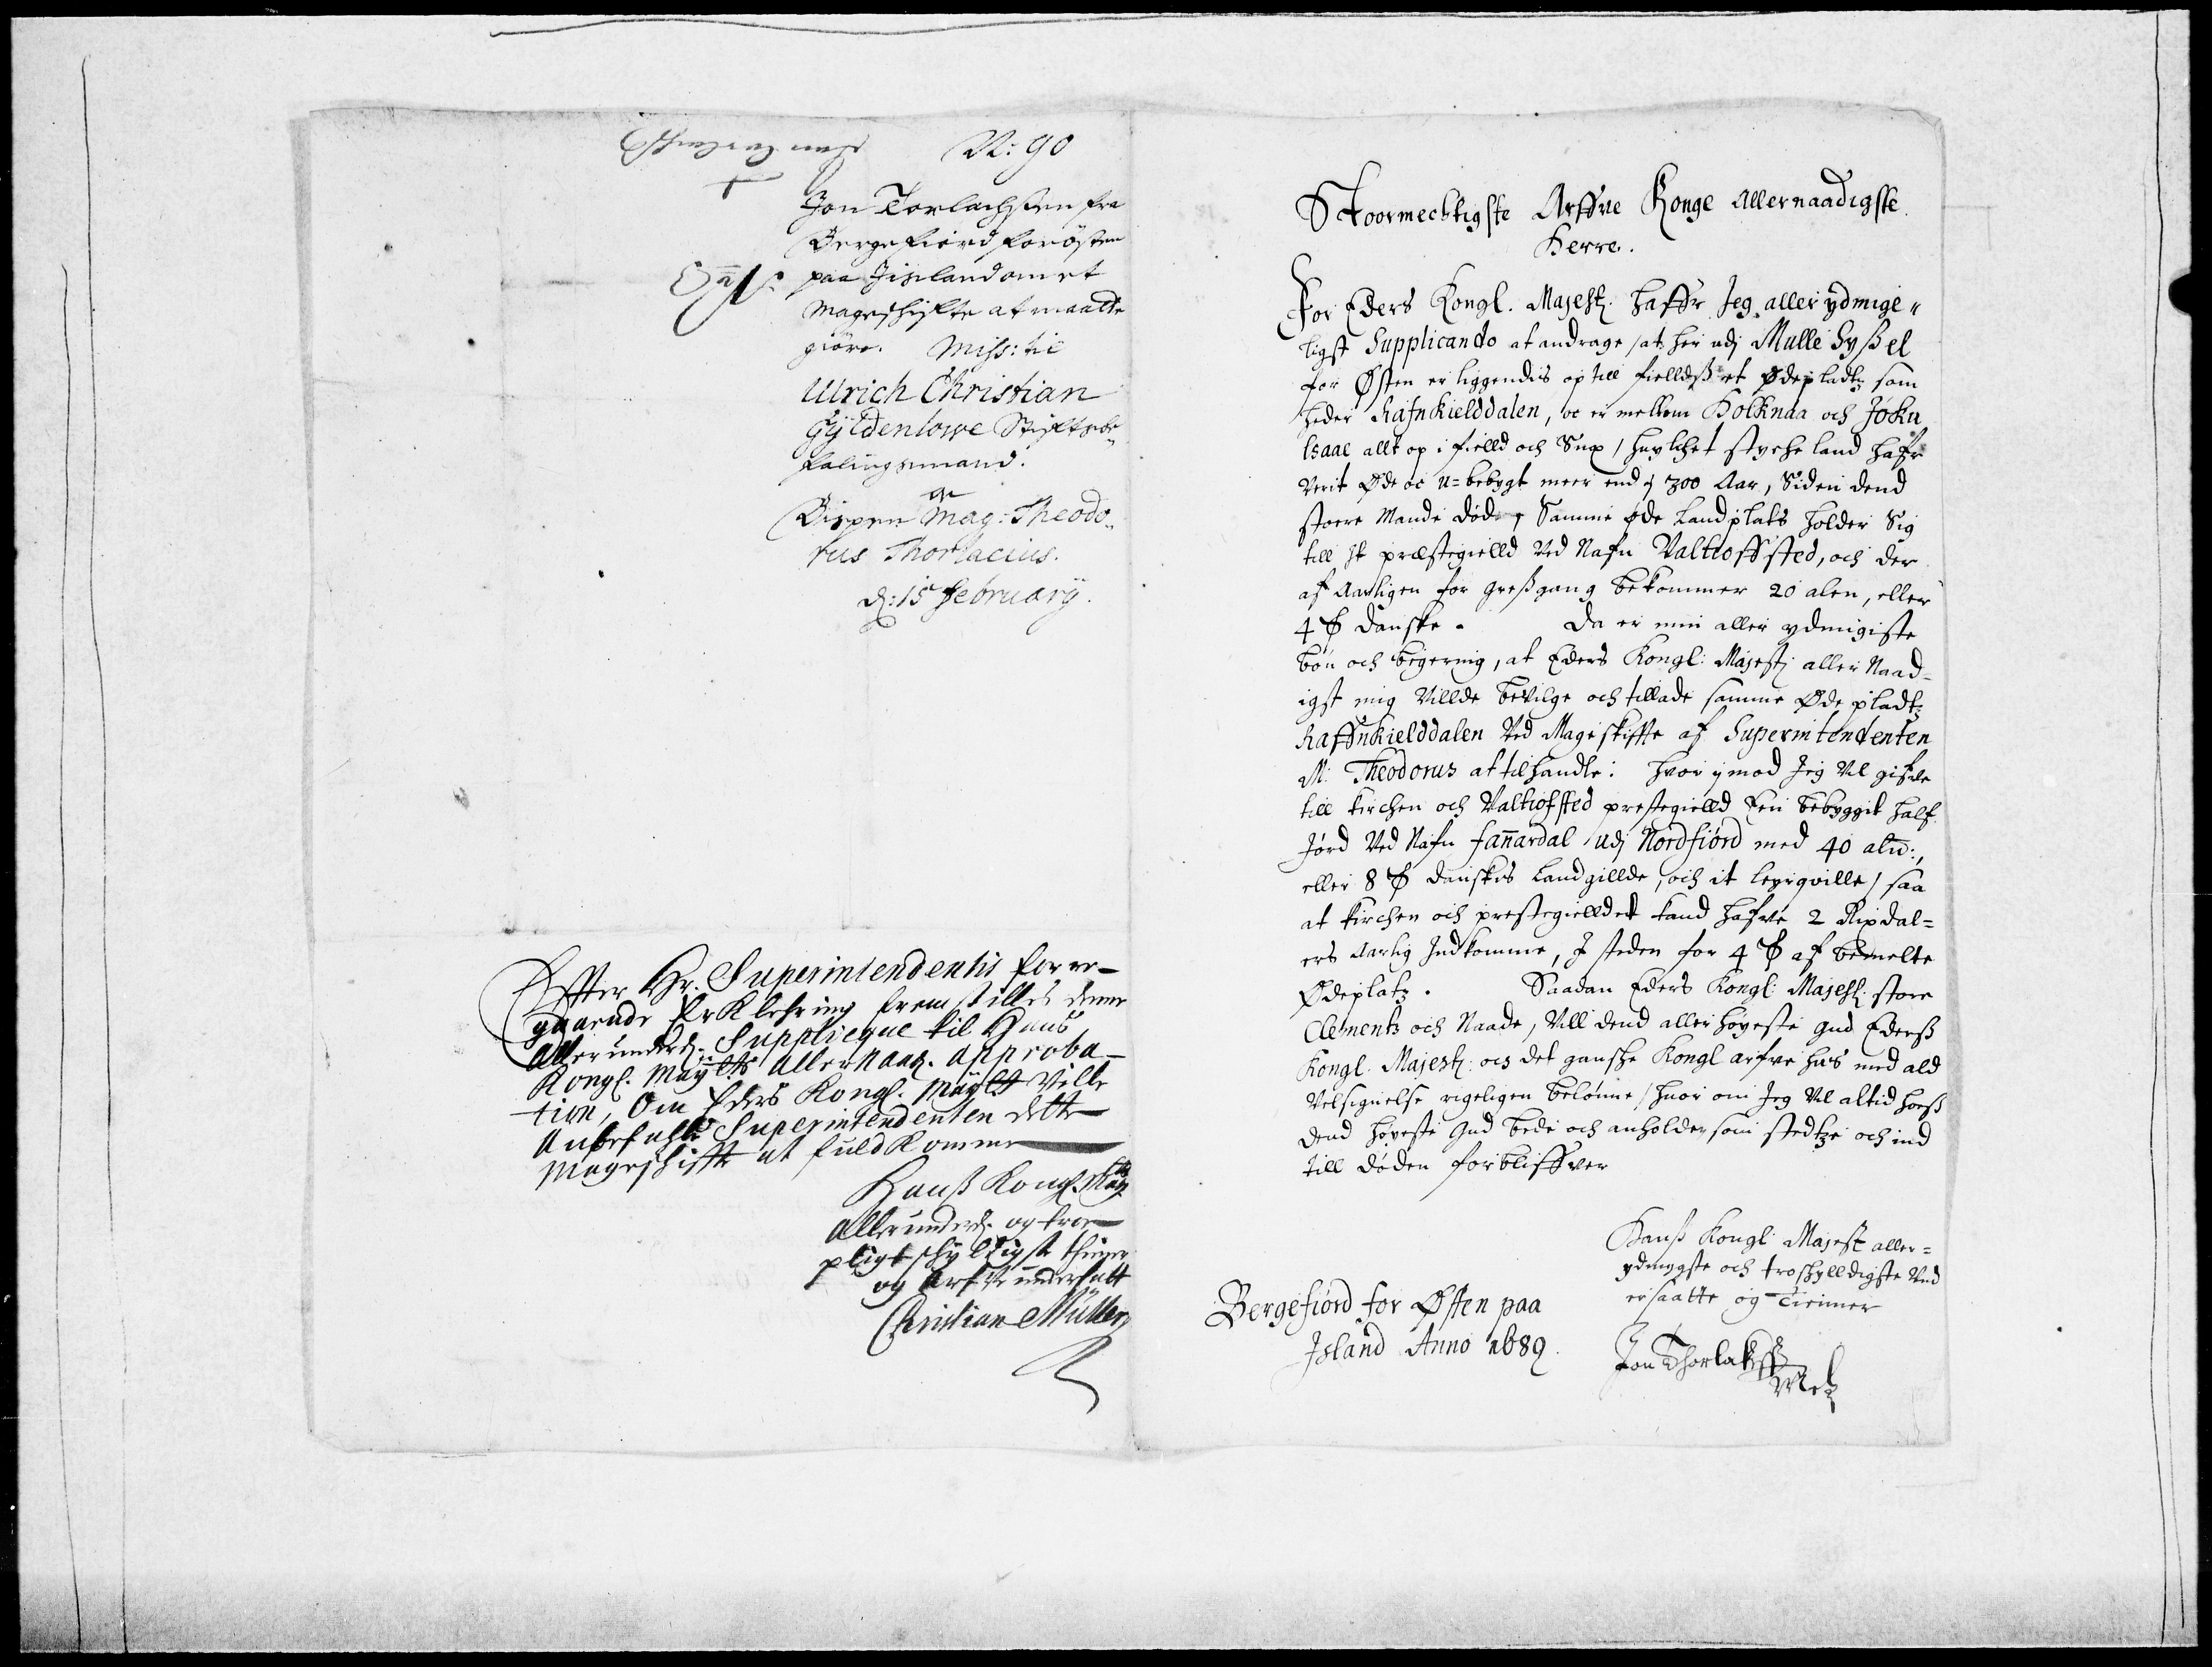 N: 90
Jon Torlachssen fra
Bergefiord forøsten
paa Jisland om et
Mageschifte at maatte
giøre. Miss: til
Ulrich Christian
Gyldenlowe Stiftsbe¬
falingsmand.
og
Bispen Mag: Theodo¬
rus Thorlacius.
d: 15 Februarij.
Effter Hr. Superintendentis forre-
gaaende Erklehring fremstilles denne
allerunderd. Supplicque til Hans
Kongl. Mayts Allernaad. Approba-
tion, Om Eders Kongl. Mayts Ville
Anbefahle Superintendenten dette
Mageschiffte at fuldkomme
Hanß Kongl. Mays
Allerunderd. og troe
pligtschyldigste thiener
og Arfve undersatt
Christian Müller
Stoormechtigste Arffve Konge Allernaadigste
Herre.
For Eders Kongl. Majest. haffr Jeg aller ydmige¬
ligst Supplicando at andrage, at her udj Mulle Syßel
for Østen er liggendis op till fielldß et Ødepladtz som
heder Rafnkielddalen, oc er mellem Holknaa och Jøku
lsaae allt op i fielld och Snee, huylchet stycke land hafr
verit Øde oc u=bebygt meer end j 300 Aar, Siden dend
stoere Mande død, Samme øde Landplats holder Sig
till it præstegielld ved Nafn Valtioffsted, och der
af Aarligen for greßgang bekommer 20 alen, eller
4 ß danske. Da er min aller ydmigiste
bøn och begering, at Eders Kongl: Majest: aller Naad¬
igst mig villde bevilge och tillade samme Øde pladtz
Raffnkielddalen ved Mageskiffte af Superintendenten
M: Theodorus at tilhandle: hvor imod Jeg vil gifve
till kirchen och Valtiofsted prestegielld Een bebyggit half
Jørd ved Nafn Fannardal udj Nordfiørd med 40 aln:,
eller 8 ß danskes Landgillde, och it leyeqville, saa
at kirchen och prestegielldet kand hafve 2 Rixdal=
ers Aarlig Indkomme, I steden for 4 ß af bemelte
Ødeplatz. Saadan Eders Kongl: Majest: store
Clements och Naade, Vill dend aller høyeste Gud Ederß
Kongl. Majest: och det ganske Kongl arfve huus med ald
Velsignelse rigeligen belønne, huor om Jeg vil altid hoeß
dend høyeste Gud bede och anholde, som stedtze och ind
till døden forbliffver
Hanß Kongl Majest aller=
ydmygste och troskylldigste und
ersaatte og Tienner
Jon Thorlaksß
Bergefiörd for Østen paa
Jsland Anno 1689.